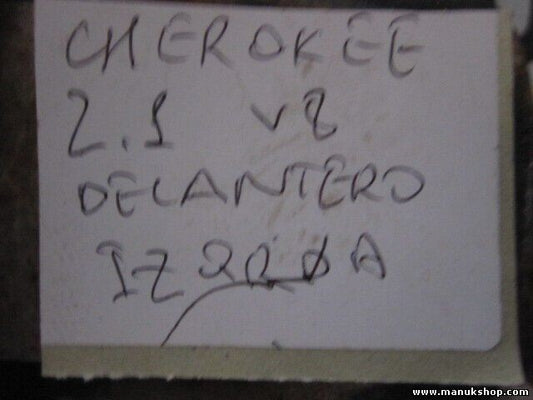 CHEROKEE
2.1 V8
DELANTERO
IZQDA
www.manukshop.com